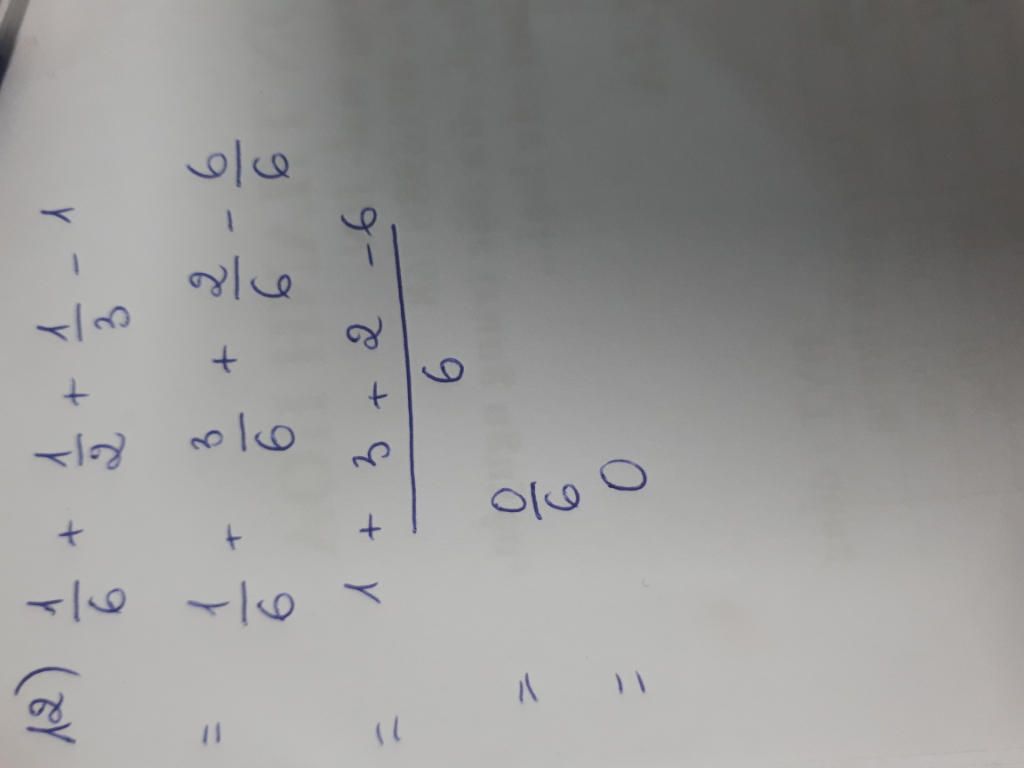 12) 1/6 + 1/2 + 1/3 - 1
= 1/6 + 3/6 + 2/6 - 6/6
= 1 + 3 + 2 - 6 / 6
= 0/6
= 0